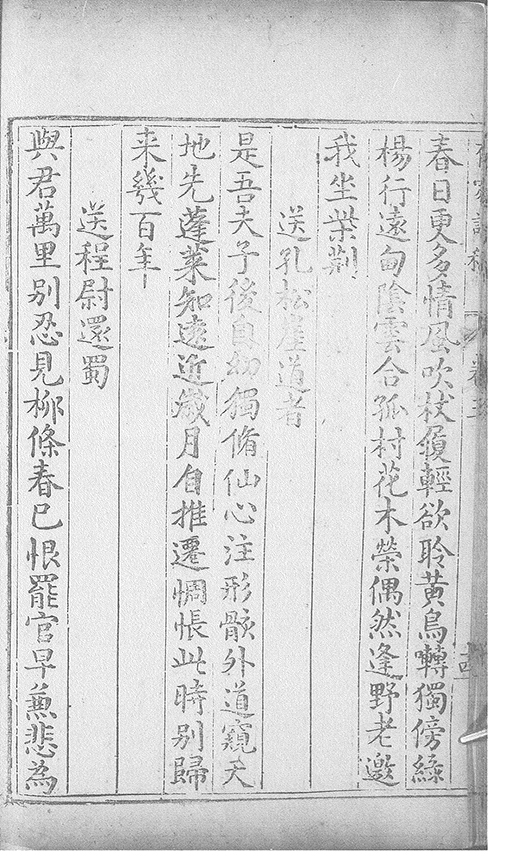 春日更多情風吹杖履輕欲聆黃鳥囀獨傍綠
楊行遠甸陰雲合孤村花木榮偶然逢野老邀
我坐柴荆
送孔松崖道者
是吾夫子後自幼獨脩仙心注形骸外道窺天
地先蓬萊知遠近歲月自推遷惆悵此時別歸
来幾百年
送程尉還蜀
與君萬里别忍見柳條春已恨罷官早兼悲為